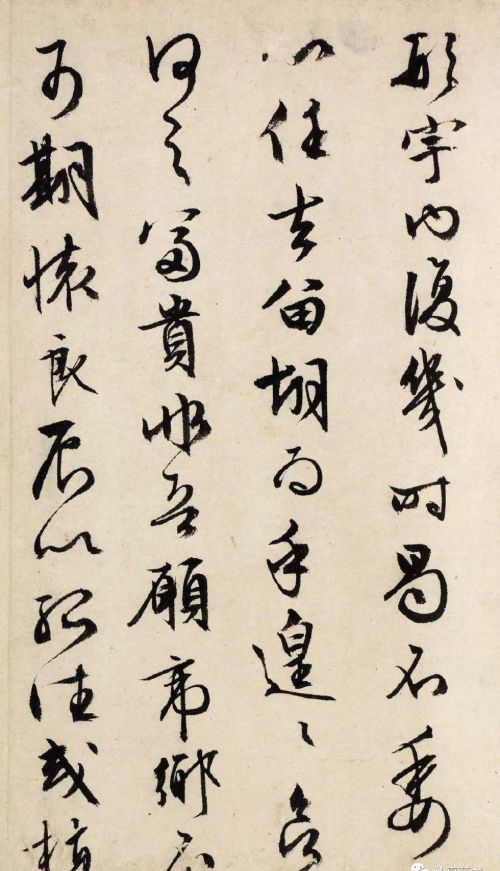 形宇内復幾时曷不委
心任去留胡為乎遑〻欲
何之富貴非吾願帝鄉不
可期懷良辰以孤往或植